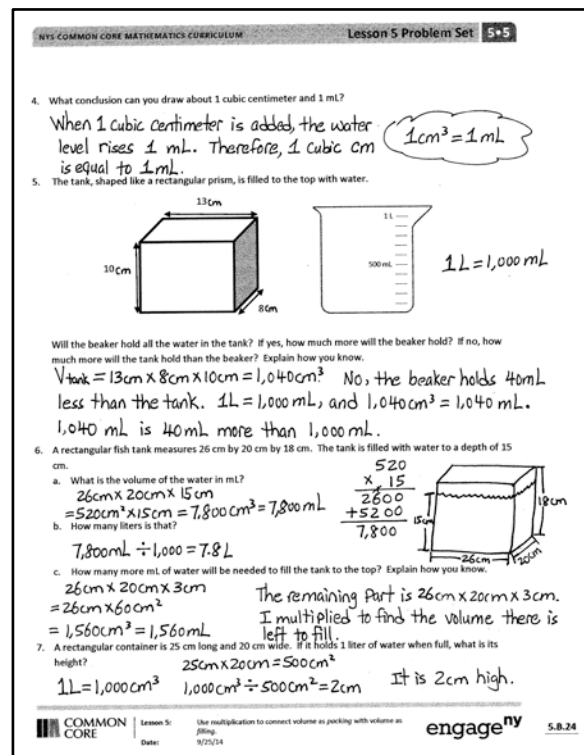 NYS COMMON CORE MATHEMATICS CURRICULUM
Lesson 5 Problem Set 5•5
4. What conclusion can you draw about 1 cubic centimeter and 1 mL?
When 1 cubic centimeter is added, the water
level rises 1 mL. Therefore, 1 cubic cm
is equal to 1mL.
1cm³ = 1mL
5. The tank, shaped like a rectangular prism, is filled to the top with water.
13cm
10cm
8cm
1 L
500 mL
1L = 1,000 mL
Will the beaker hold all the water in the tank? If yes, how much more will the beaker hold? If no, how
much more will the tank hold than the beaker? Explain how you know.
Vtank = 13cm x 8cm x 10cm = 1,040cm³. No, the beaker holds 40mL
less than the tank. 1L = 1,000 mL, and 1,040cm³ = 1,040 mL.
1,040 mL is 40mL more than 1,000 mL.
6. A rectangular fish tank measures 26 cm by 20 cm by 18 cm. The tank is filled with water to a depth of 15
cm.
a. What is the volume of the water in mL?
26cm x 20cm x 15cm
= 520cm² x 15cm = 7,800cm³ = 7,800mL
520
x 15
2600
+5200
7,800
15cm
18cm
26cm
20cm
b. How many liters is that?
7,800mL ÷ 1,000 = 7.8L
c. How many more mL of water will be needed to fill the tank to the top? Explain how you know.
26cm x 20cm x 3cm
= 26cm x 60cm²
= 1,560cm³ = 1,560mL
The remaining part is 26cm x 20cm x 3cm.
I multiplied to find the volume there is
left to fill.
7. A rectangular container is 25 cm long and 20 cm wide. If it holds 1 liter of water when full, what is its
height?
25cm x 20cm = 500cm²
1L = 1,000cm³ 1,000cm³ ÷ 500cm² = 2cm It is 2cm high.
COMMON CORE
Lesson 5: Use multiplication to connect volume as packing with volume as
filling.
Date: 9/25/14
engage ny
5.B.24